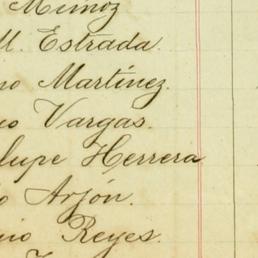 Muñoz
M. Estrada.
no Martínez.
io Vargas.
lupe Herrera
o Arjón.
nio Reyes.